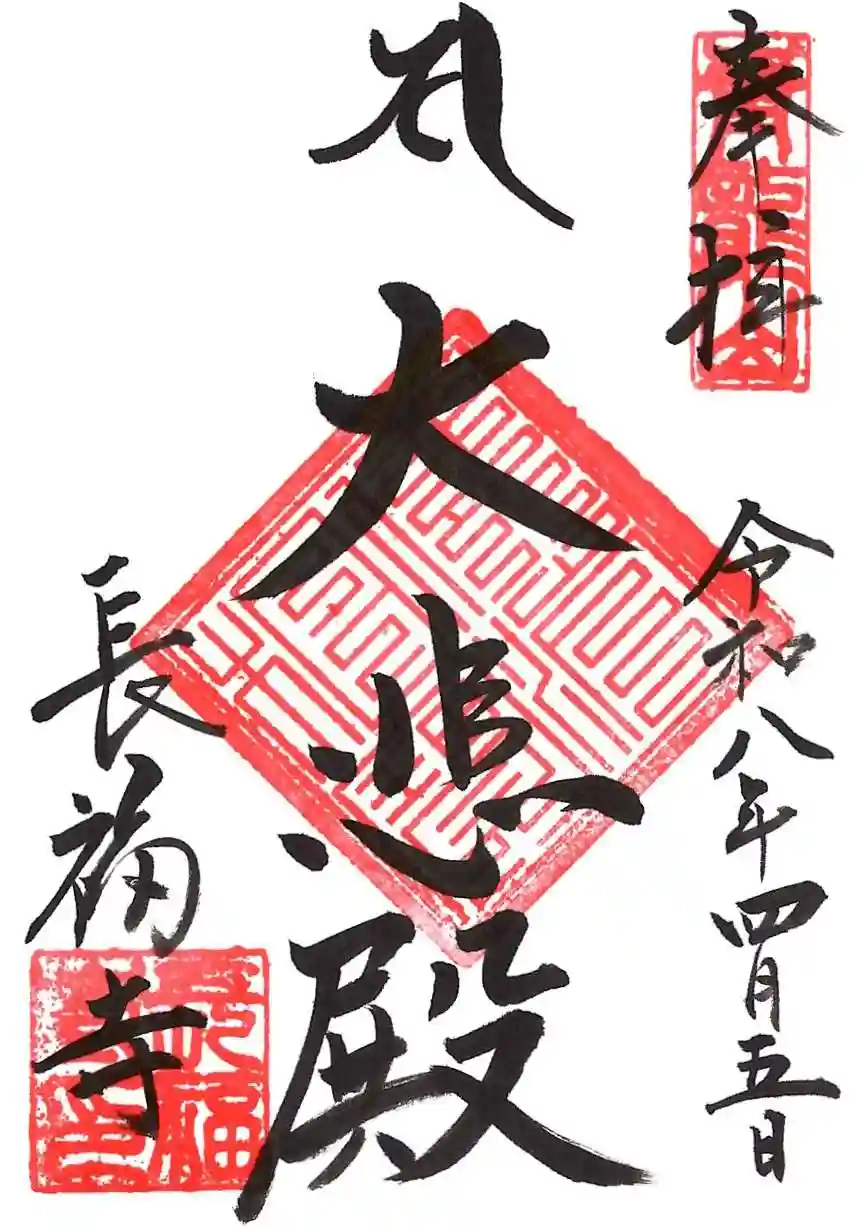 奉拝
令和八年四月五日
大悲殿
長福寺